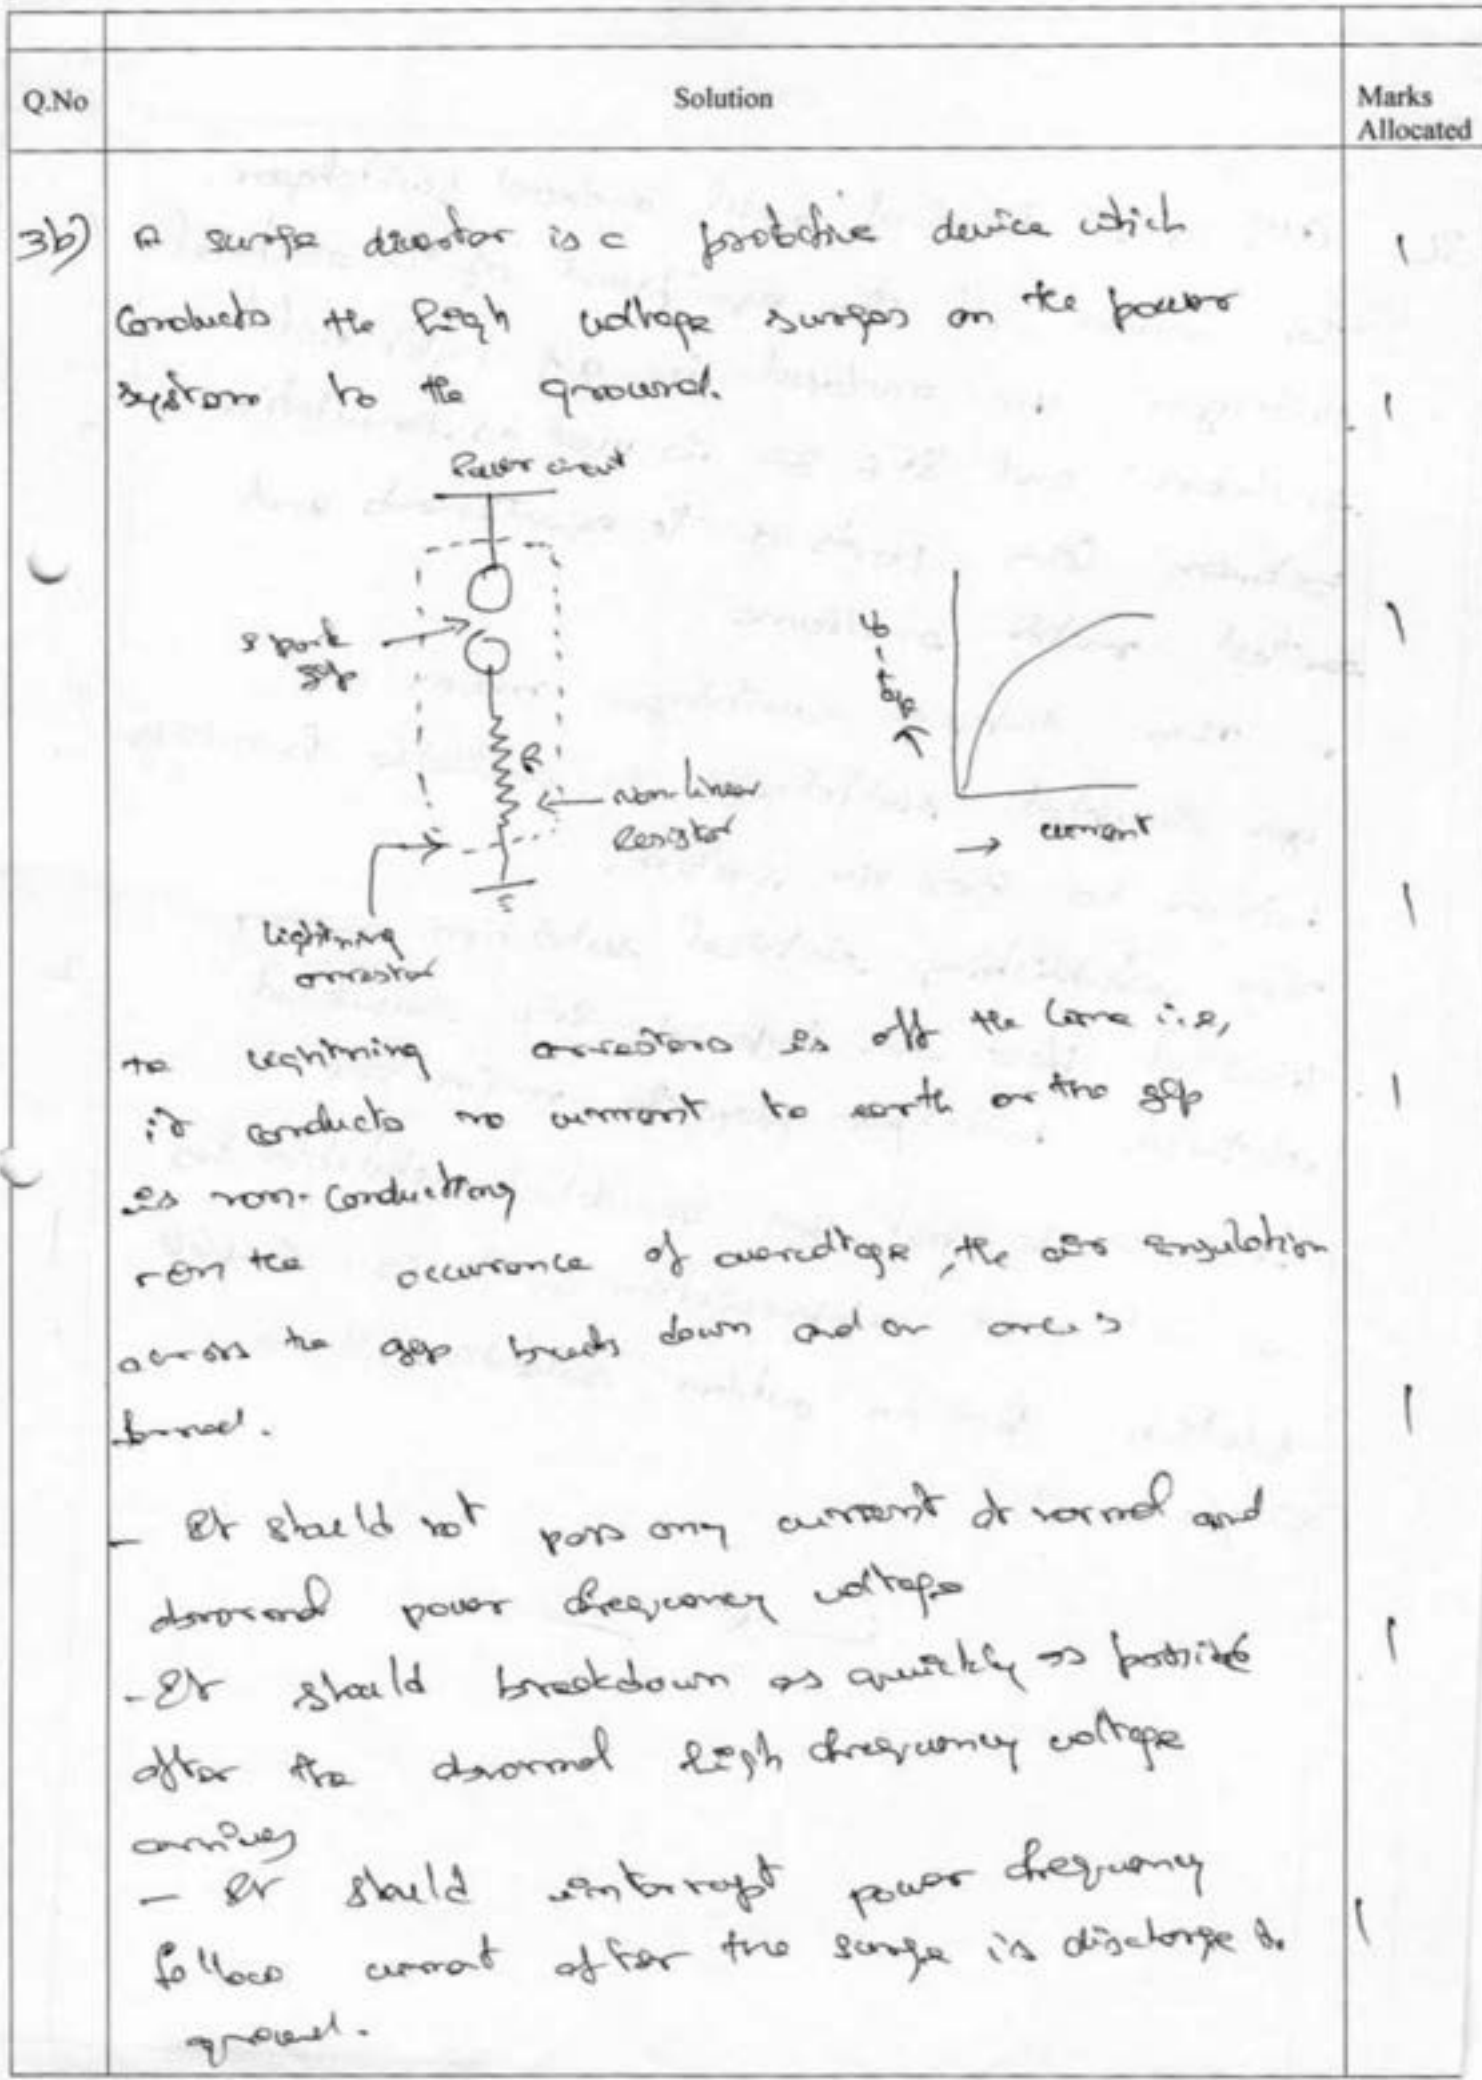 Q.No Solution Marks Allocated
3b) A surge divertor is a protective device which 1
Conducts the high voltage surges on the power
system to the ground. 1
Power circuit
spark gap
R
non-linear resistor
lightning arrestor
voltage
→ current
1
1
the lightning arrestors is off the line i.e,
it conducts no current to earth or the gap 1
is non-conducting
On the occurance of overvoltage, the air insulation
across the gap breaks down and an arc is
formed. 1
- It should not pass any current at normal and
abnormal power frequency voltage
- It should breakdown as quickly as possible 1
after the abnormal high frequency voltage
arrives
- It should interrupt power frequency
follow current after the surge is discharge to 1
ground.